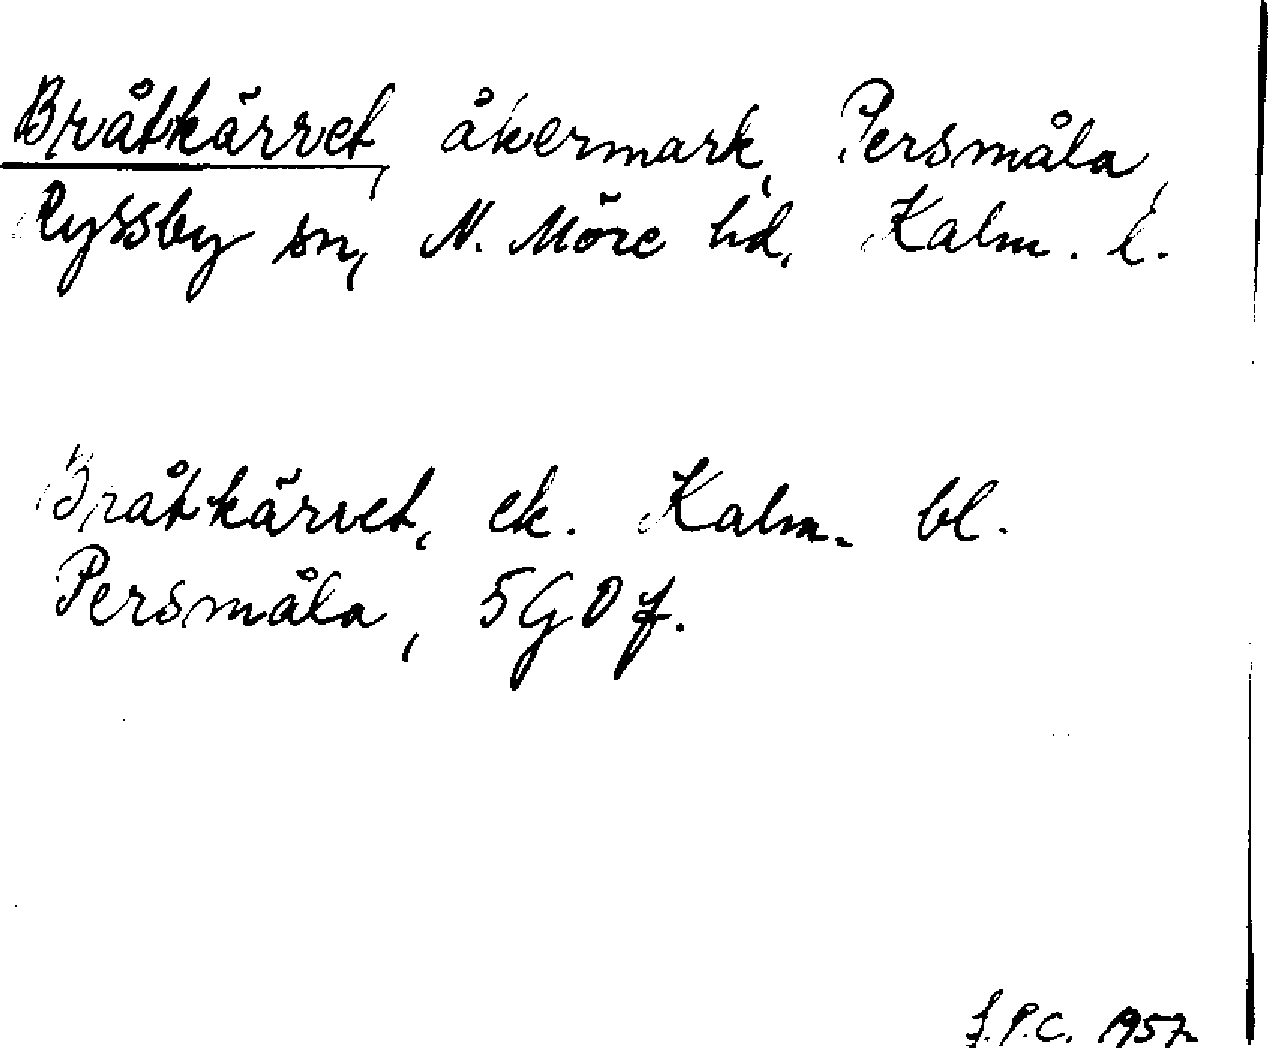 Bråtkärret, åkermark, Persmåla,
Ryssby sn, N. Möre hd, Kalm. l.
Bråtkärret, ek. Kalm. bl.
Persmåla, 5G0f.
J.P.C. 1957